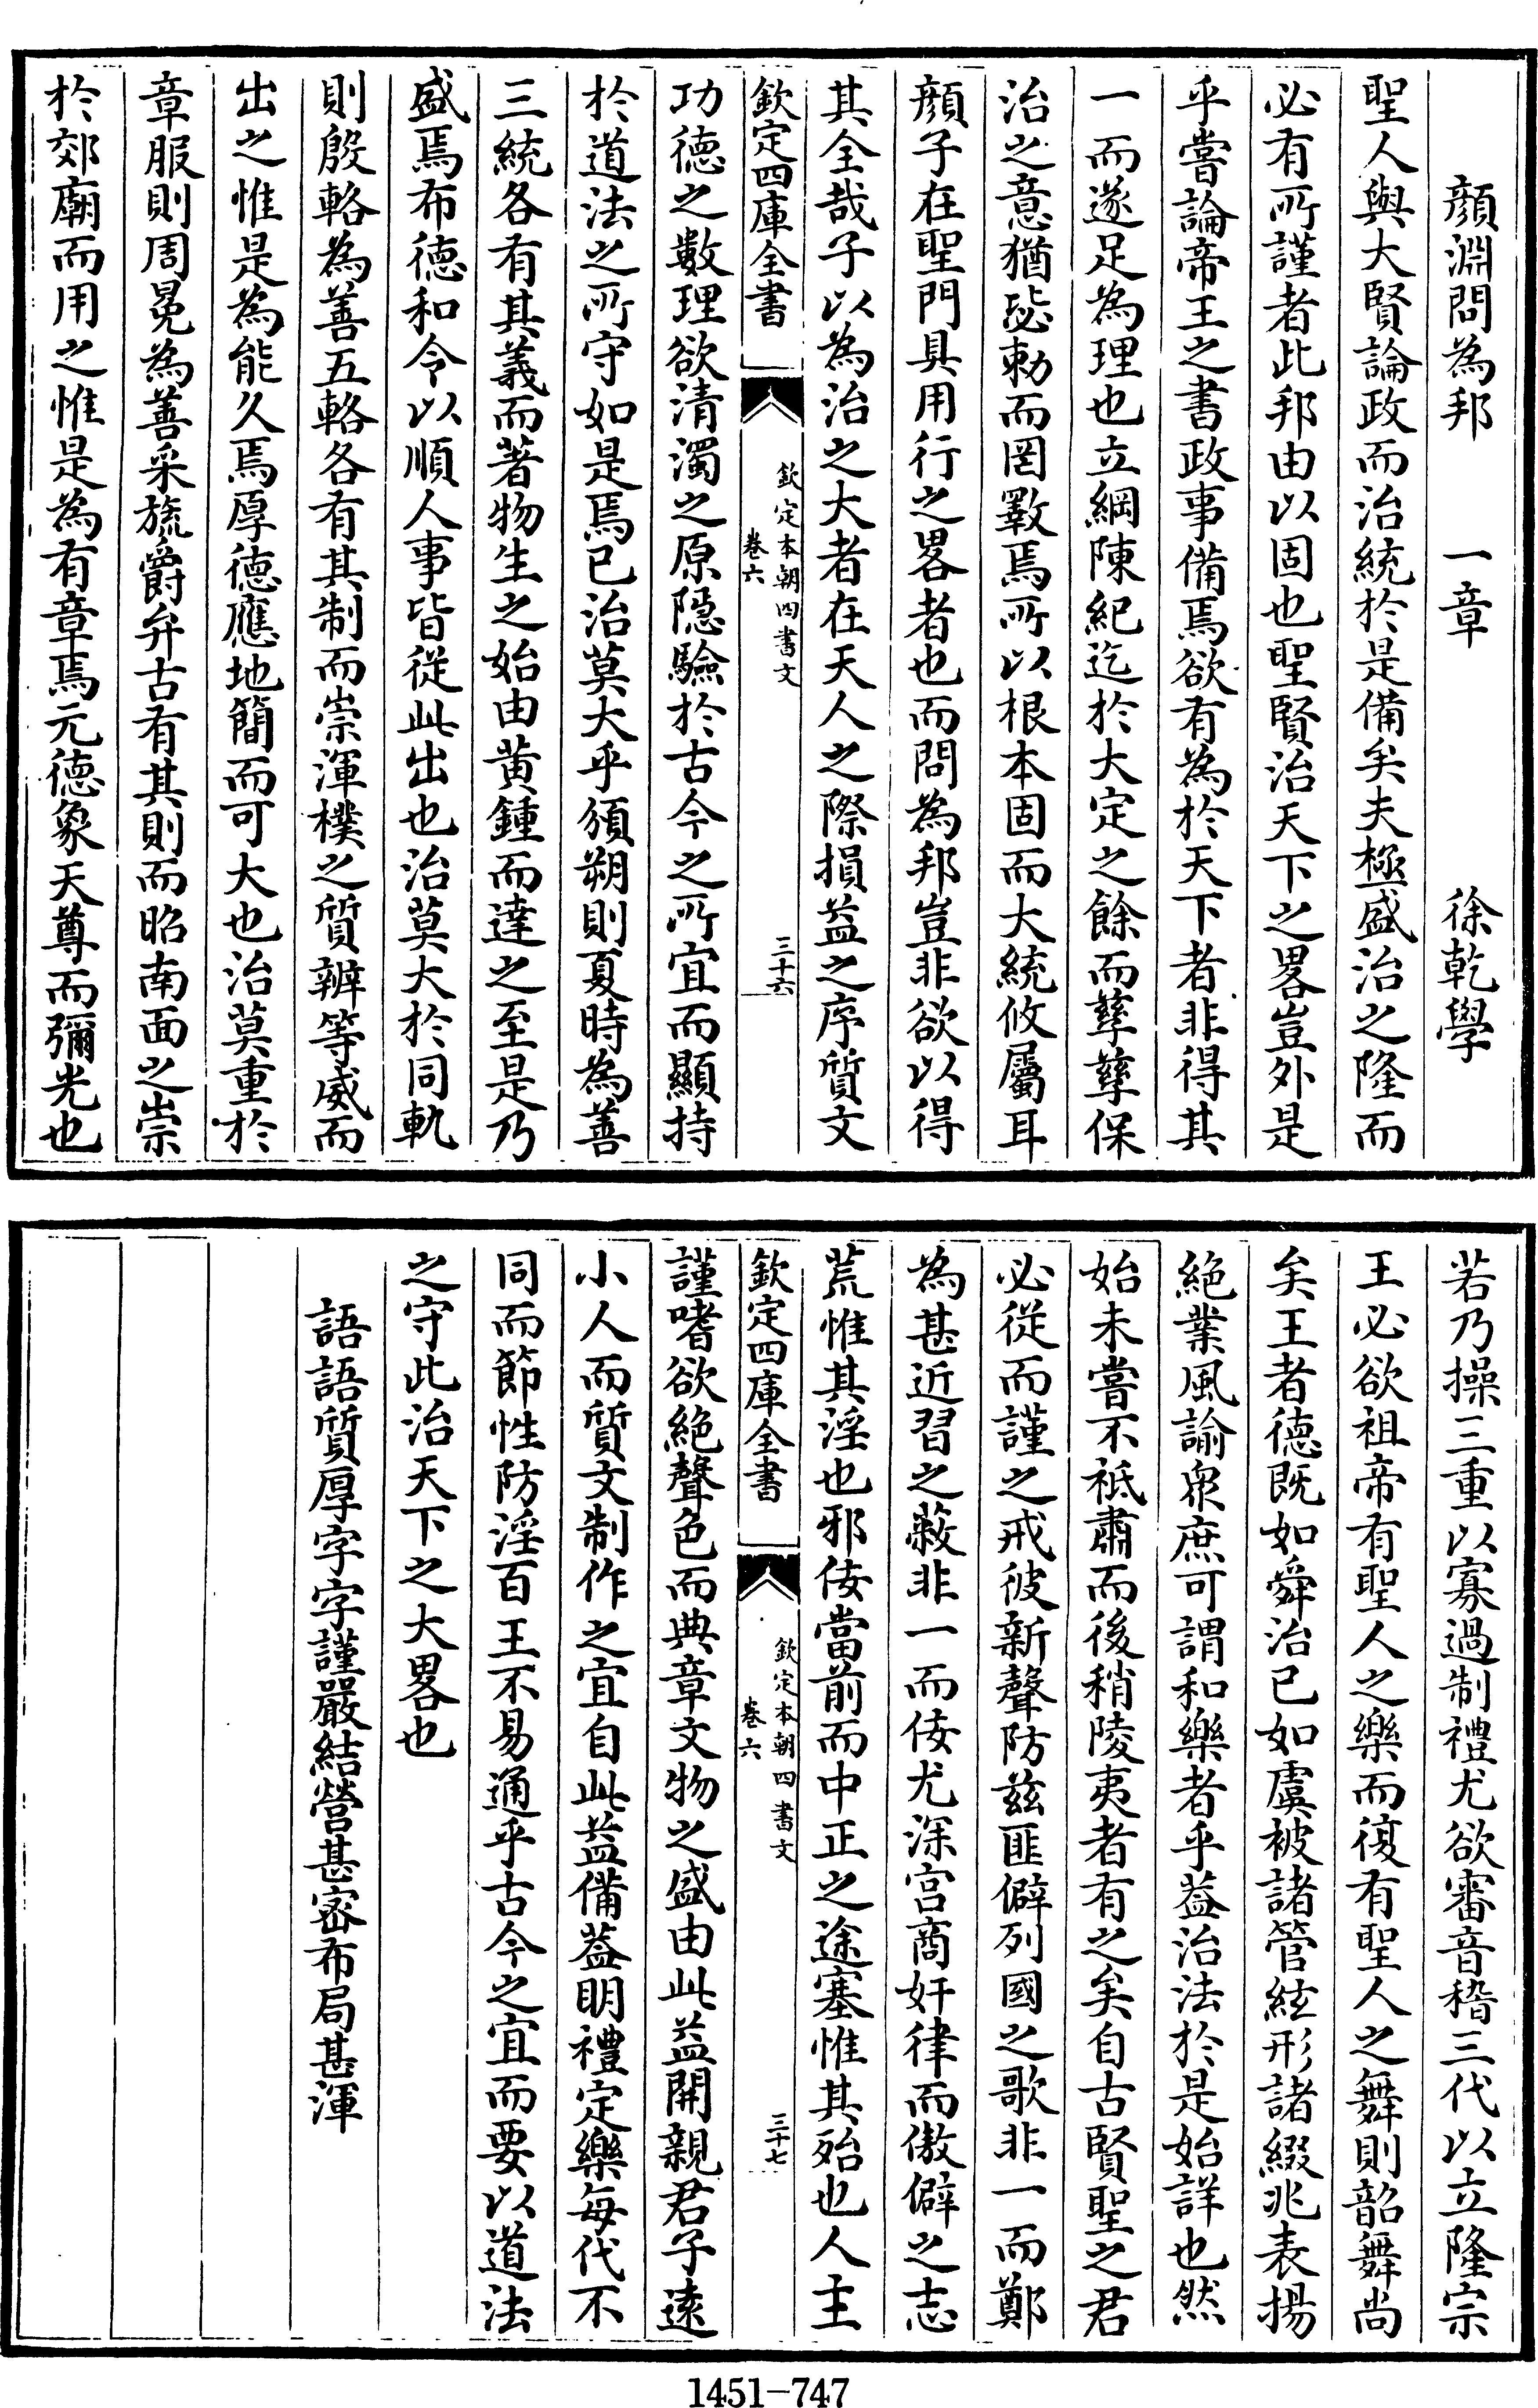 顔淵問為邦　一章　徐乾學
聖人與大賢論政而治統於是備矣夫極盛治之隆而
必有所謹者此邦由以固也聖賢治天下之畧豈外是
乎嘗論帝王之書政事備焉欲有為於天下者非得其
一而遂足為理也立綱陳紀迄於大定之餘而孳孳保
治之意猶毖勅而罔斁焉所以根本固而大統攸屬耳
顔子在聖門具用行之畧者也而問為邦豈非欲以得
其全哉子以為治之大者在天人之際損益之序質文
欽定四庫全書
欽定本朝四書文
卷六
三十六
功德之數理欲清濁之原隠驗於古今之所宜而顯持
於道法之所守如是焉已治莫大乎頒朔則夏時為善
三統各有其義而著物生之始由黄鍾而達之至是乃
盛焉布德和令以順人事皆從此出也治莫大於同軌
則殷輅為善五輅各有其制而崇渾樸之質辨等威而
出之惟是為能久焉厚德應地簡而可大也治莫重於
章服則周冕為善采旒爵弁古有其則而昭南面之崇
於郊廟而用之惟是為有章焉元德象天尊而彌光也
若乃操三重以寡過制禮尤欲審音稽三代以立隆宗
王必欲祖帝有聖人之樂而復有聖人之舞則韶舞尚
矣王者德既如舜治已如虞被諸管絃形諸綴兆表揚
絶業風諭衆庶可謂和樂者乎葢治法於是始詳也然
始未嘗不祗肅而後稍陵夷者有之矣自古賢聖之君
必從而謹之戒彼新聲防兹匪僻列國之歌非一而鄭
為甚近習之蔽非一而佞尤深宫商奸律而傲僻之志
荒惟其淫也邪佞當前而中正之途塞惟其殆也人主
欽定四庫全書
欽定本朝四書文
卷六
三十七
謹嗜欲絶聲色而典章文物之盛由此益開親君子逺
小人而質文制作之宜自此益備葢明禮定樂每代不
同而節性防淫百王不易通乎古今之宜而要以道法
之守此治天下之大畧也
語語質厚字字謹嚴結營甚密布局甚渾
1451-747